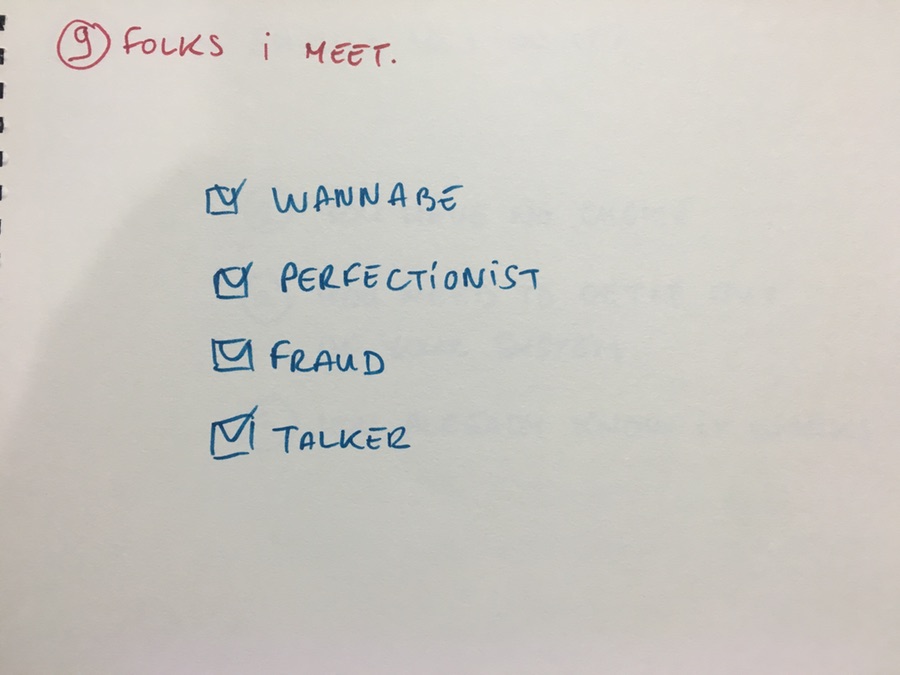 9 FOLKS i MEET.
WANNABE
PERFECTiONiST
FRAUD
TALKER